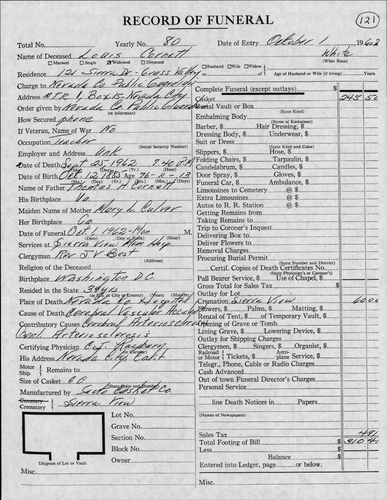 RECORD OF FUNERAL
121
Total No. Yearly No. 80 Date of Entry October 1 1962
Name of Deceased Louis Cornett White
Married Single Widowed Divorced Husband Wife Widow (What Race)
Residence 121 Sierra Dr - Grass Valley Age of Husband or Wife (if living) Years
Charge to Nevada Co Public Guardian
Complete Funeral (except outlays)
Address Box Nevada City
Casket 245 50
Order given by Nevada Co Public Guardian
Burial Vault or Box
(or informant) (State Kind)
Embalming Body
How Secured phone
(Name of Embalmer)
Barber, $ Hair Dressing, $
If Veteran, Name of War No
Dressing Body, $ Underwear, $
Occupation
Suit or Dress
(Social Security Number) (State Kind and Color)
Slippers, $ Hose, $
Employer and Address Unk
Folding Chairs, $ Tarpaulin, $
Date of Death Sept 25, 1962 7:40 PM
Candelabrum, $ Candles, $
Date of Birth Oct. 12, 1885 Age 76-11-13
Door Spray, $ Gloves, $
Name of Father Thomas H Cornett
Funeral Car, $ Ambulance, $
His Birthplace Va
Limousines to Cemetery @ $
Extra Limousines @ $
Maiden Name of Mother Mary L. Culver
Autos to R. R. Station @ $
Her Birthplace Ga
Getting Remains from
Date of Funeral Oct. 1, 1962 - Mon M.
Taking Remains to
Trip to Coroner's Inquest
Services at Sierra View Mem
Delivering Box to
Clergyman Rev J V Best
Deliver Flowers to
Religion of the Deceased
Removal Charges
Procuring Burial Permit
Birthplace Washington D.C.
(State Number and District)
Certif. Copies of Death Certificates No.
Resided in the State 38 yrs
Pall Bearer Service, $ Use of Chapel, $
Place of Death Nevada Co Hospital
Gross Total for Sales Tax $
Outlay for Lot
Cause of Death Cerebral Vascular
Cremation Sierra View 60 00
Contributory Causes Cerebral Arteriosclerosis
Flowers, $ Palms, $ Matting, $
Rental of Tent, $ of Temporary Vault, $
Arteriosclerosis
Opening of Grave or Tomb
Certifying Physician
Lining Grave, $ Lowering Device, $
Outlay for Shipping Charges
His Address Nevada City, Calif
Clergymen, $ Singers, $ Organist, $
Motor Ship Remains to
Railroad or Motor Tickets, $ Aeroplane Service, $
Size of Casket
Telegr., Phone, Cable or Radio Charges
Cash Advanced
Manufactured by Casket Co
Out of town Funeral Director's Charges
Cemetery
Personal Service
Crematory Sierra View
Lot No.
line Death Notices in Papers
Grave No.
(Names of Newspapers)
Section No.
Sales Tax 4 91
Block No.
Total Footing of Bill $ 310 41
Less
Owner
Balance $
Diagram of Lot or Vault
Entered into Ledger, page or below.
Misc. Misc.